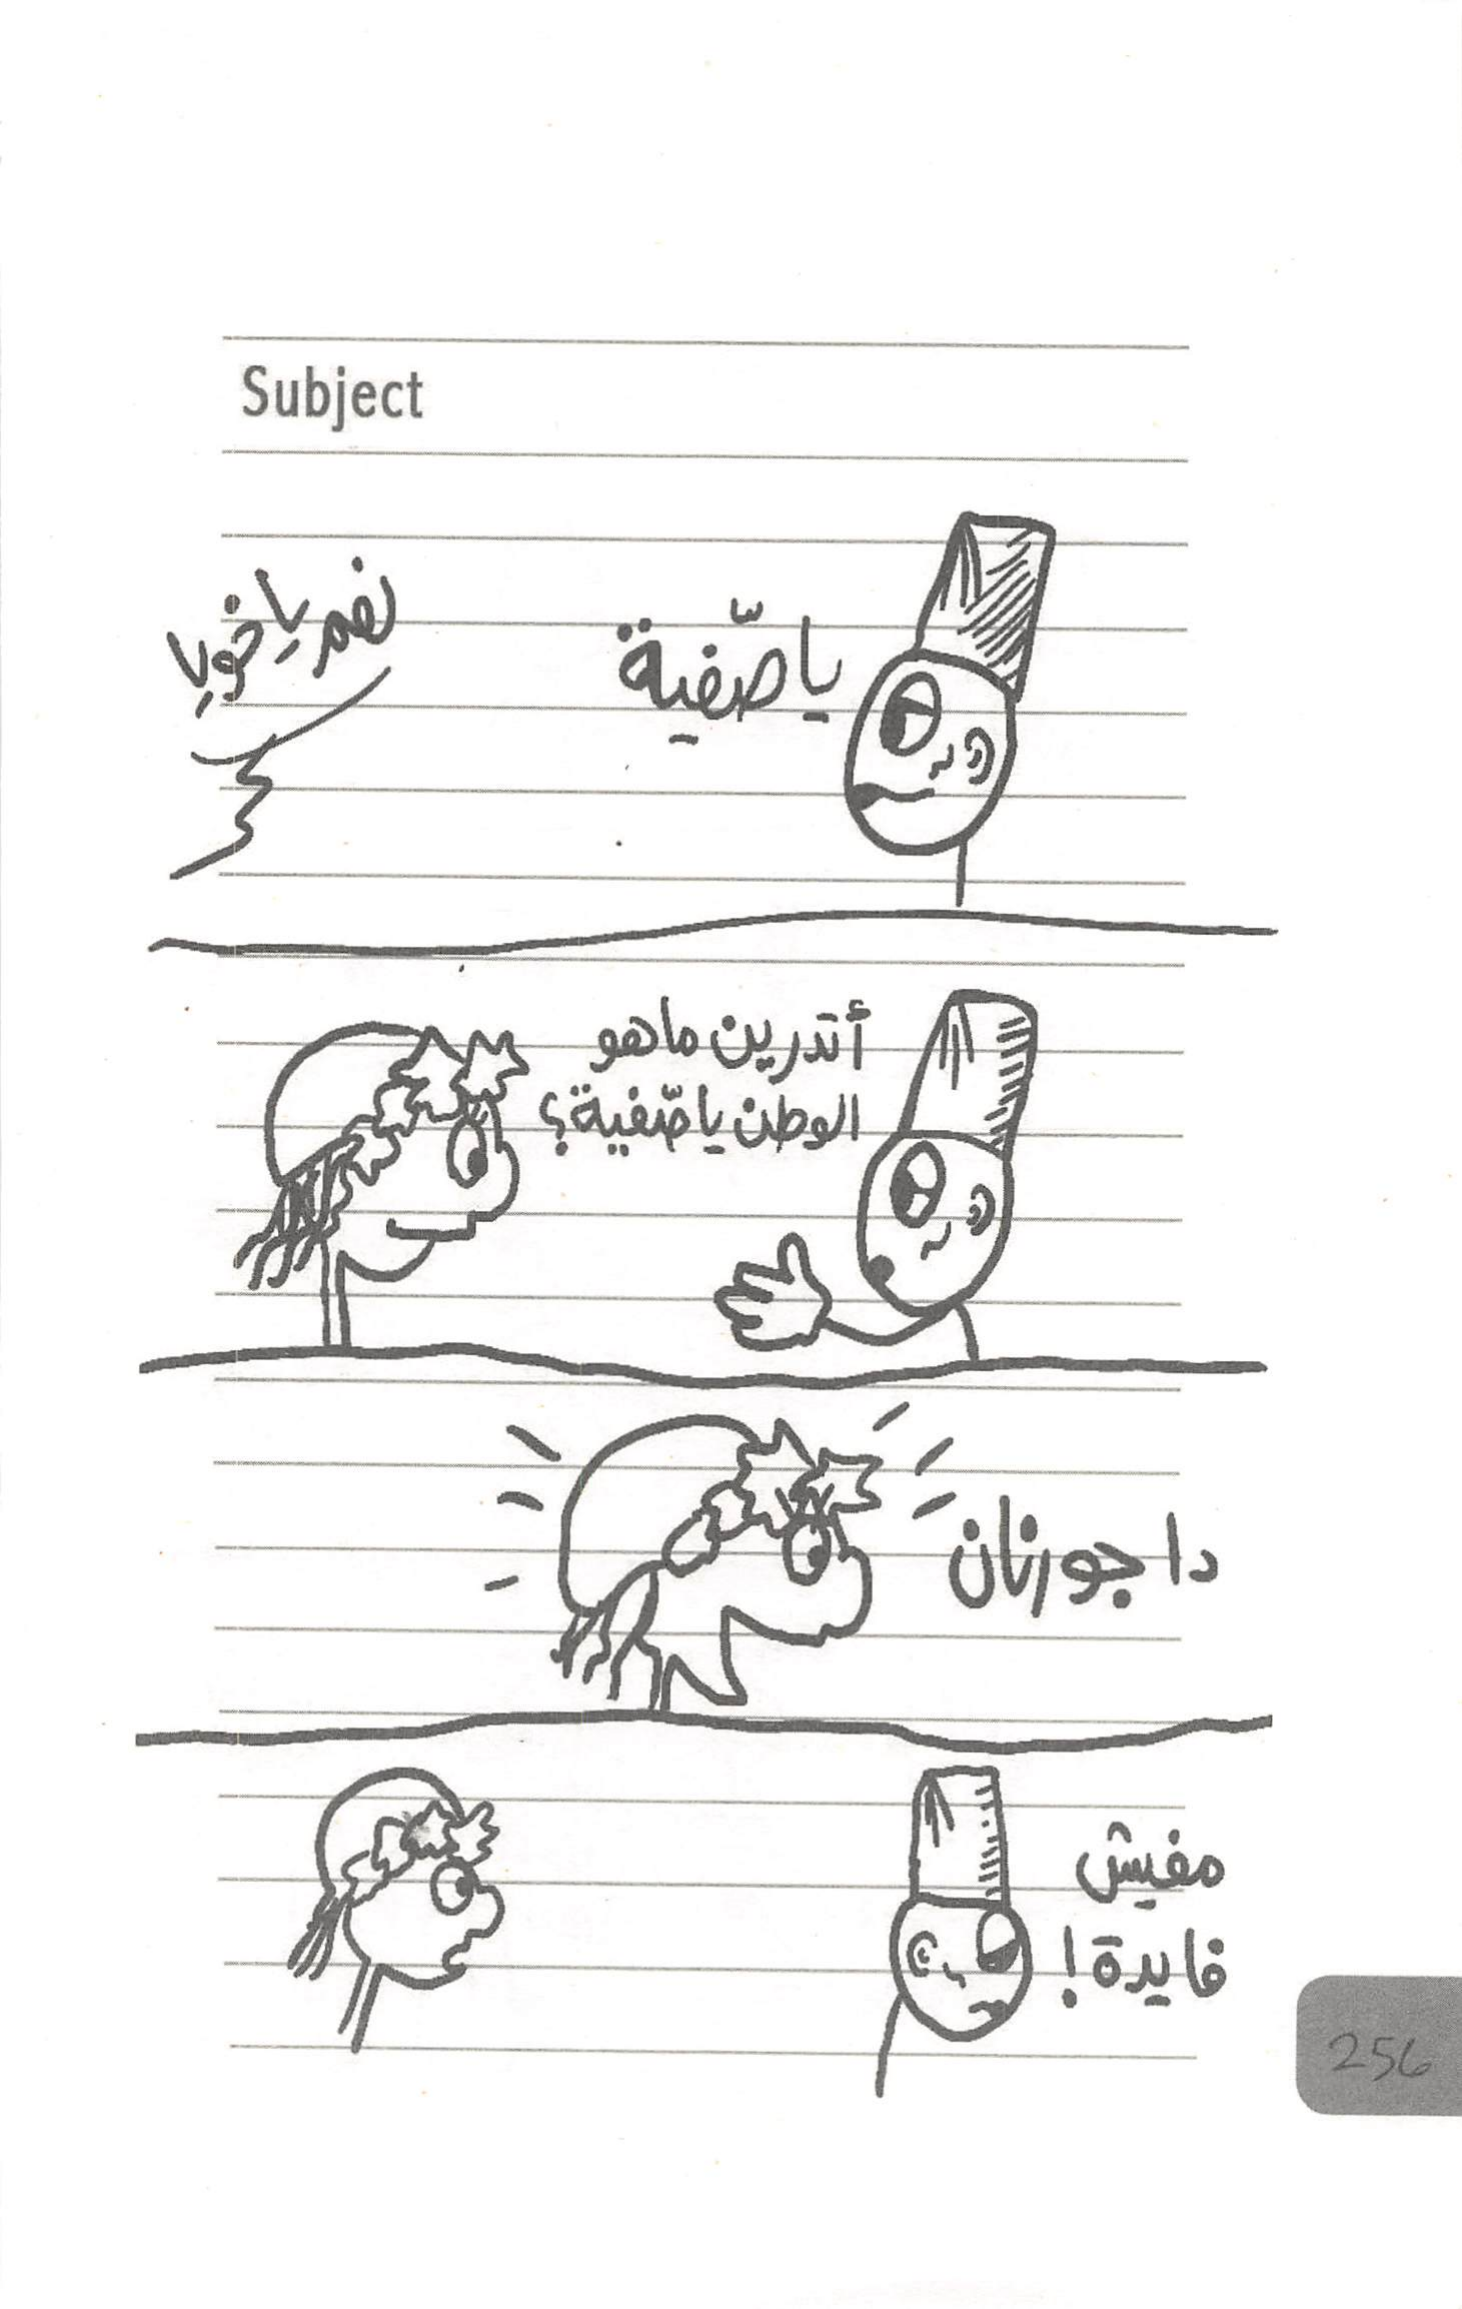 Subject
يا صّفية
نعم يا خويا
أتدرين ما هو
الوطن يا صّفية؟
دا جورنان
مفيش
فايدة!
256